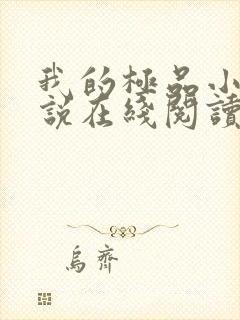 我的極品小
說在綫閱讀
烏齊